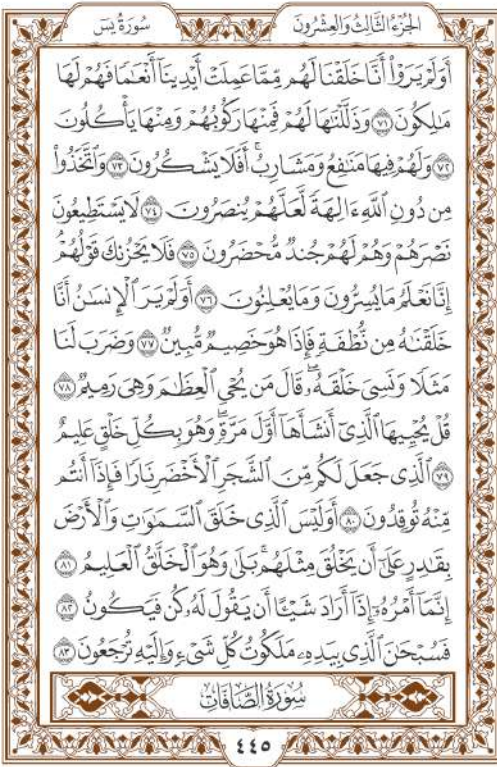 الجزء الثالث والعشرون سورة يس
أَوَلَمْ يَرَوْا۟ أَنَّا خَلَقْنَا لَهُم مِّمَّا عَمِلَتْ أَيْدِينَآ أَنْعَـٰمًا فَهُمْ لَهَا
مَـٰلِكُونَ ۝٧١ وَذَلَّلْنَـٰهَا لَهُمْ فَمِنْهَا رَكُوبُهُمْ وَمِنْهَا يَأْكُلُونَ
۝٧٢ وَلَهُمْ فِيهَا مَنَـٰفِعُ وَمَشَارِبُ ۖ أَفَلَا يَشْكُرُونَ ۝٧٣ وَٱتَّخَذُوا۟
مِن دُونِ ٱللَّهِ ءَالِهَةً لَّعَلَّهُمْ يُنصَرُونَ ۝٧٤ لَا يَسْتَطِيعُونَ
نَصْرَهُمْ وَهُمْ لَهُمْ جُندٌ مُّحْضَرُونَ ۝٧٥ فَلَا يَحْزُنكَ قَوْلُهُمْ ۘ
إِنَّا نَعْلَمُ مَا يُسِرُّونَ وَمَا يُعْلِنُونَ ۝٧٦ أَوَلَمْ يَرَ ٱلْإِنسَـٰنُ أَنَّا
خَلَقْنَـٰهُ مِن نُّطْفَةٍ فَإِذَا هُوَ خَصِيمٌ مُّبِينٌ ۝٧٧ وَضَرَبَ لَنَا
مَثَلًا وَنَسِىَ خَلْقَهُۥ ۖ قَالَ مَن يُحْىِ ٱلْعِظَـٰمَ وَهِىَ رَمِيمٌ ۝٧٨
قُلْ يُحْيِيهَا ٱلَّذِىٓ أَنشَأَهَآ أَوَّلَ مَرَّةٍ ۖ وَهُوَ بِكُلِّ خَلْقٍ عَلِيمٌ
۝٧٩ ٱلَّذِى جَعَلَ لَكُم مِّنَ ٱلشَّجَرِ ٱلْأَخْضَرِ نَارًا فَإِذَآ أَنتُم
مِّنْهُ تُوقِدُونَ ۝٨٠ أَوَلَيْسَ ٱلَّذِى خَلَقَ ٱلسَّمَـٰوَٰتِ وَٱلْأَرْضَ
بِقَـٰدِرٍ عَلَىٰٓ أَن يَخْلُقَ مِثْلَهُم ۚ بَلَىٰ وَهُوَ ٱلْخَلَّـٰقُ ٱلْعَلِيمُ ۝٨١
إِنَّمَآ أَمْرُهُۥٓ إِذَآ أَرَادَ شَيْـًٔا أَن يَقُولَ لَهُۥ كُن فَيَكُونُ ۝٨٢
فَسُبْحَـٰنَ ٱلَّذِى بِيَدِهِۦ مَلَكُوتُ كُلِّ شَىْءٍ وَإِلَيْهِ تُرْجَعُونَ ۝٨٣
سورة الصافات
٤٤٥